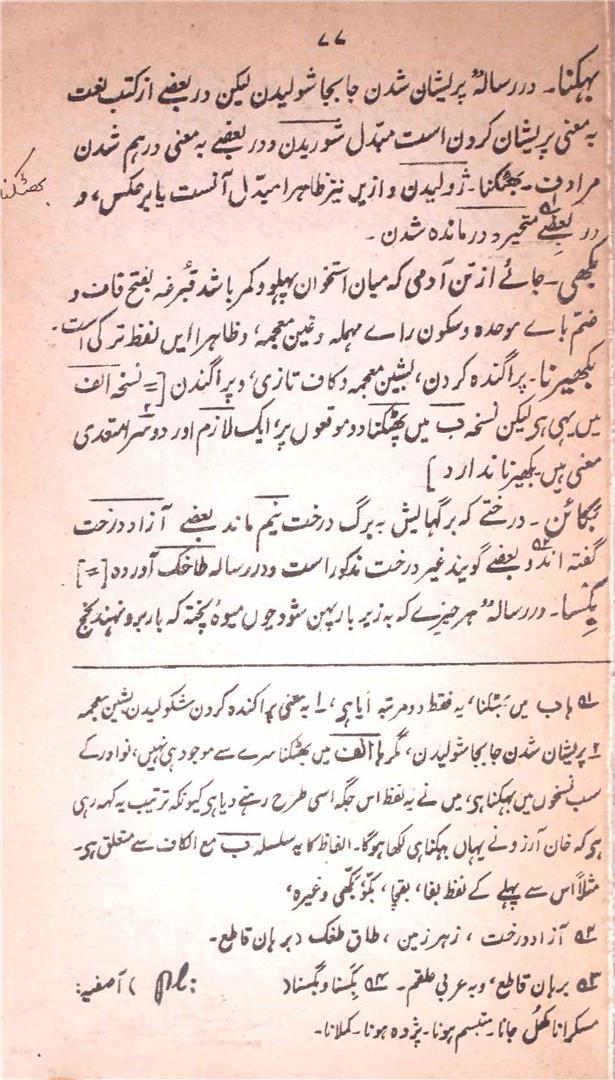 ۷۷
بہکنا۔ در رسالہ "پریشان شدن جابجا شولیدن لیکن در بعضے از کتب لغت
بہ معنی پریشان کردن است مبدّل شوریدن و در بعضے بہ معنی درہم شدن
مرادف۔ بھٹکنا۔ ژولیدن و ازیں نیز ظاہرا مبدّل آنست یا برعکس، و
بھٹکنا
در بعضے متحیر و درماندہ شدن۔
بکھی۔ جائے از تن آدمی کہ میان استخوان پہلو و کمر باشد قبُرغہ بفتح قاف و
ضم باے موحدہ و سکون راے مہملہ و غین معجمہ، و ظاہرا ایں لفظ ترکی است۔
بکھیرنا۔ پراگندہ کردن، بشین معجمہ و کاف تازی، و پراگندن [= نسخہ الف
میں یہی ہے لیکن نسخہ ب میں پھٹکنا دو موقعوں پر، ایک لازم اور دوسرا متعدی
معنی ہیں۔ بکھیرنا ندارد]
بکائن۔ درختے کہ برگہایش بہ برگ درخت نیم ماند بعضے آزاد درخت
گفتہ اند و بعضے گویند غیر درخت مذکور است و در رسالہ طاخک آوردہ [=]
بِگسا۔ در رسالہ "ہر چیزے کہ بہ زیر بار پہن شود چوں میوہ پختہ کہ بار برو نہند پخچ
۵۱ ہا ب میں بَہٹکنا، یہ فقط دو مرتبہ آیا ہے، ۱۔ بہ معنی پراگندہ کردن شکولیدن بشین معجمہ
۲ پریشان شدن جابجا شولیدن، مگر ہا الف میں بھٹکنا سرے سے موجود ہی نہیں، نوادر کے
سب نسخوں میں بہکنا ہے، میں نے یہ لفظ اس جگہ اسی طرح رہنے دیا ہے کیونکہ ترتیب یہ کہہ رہی
ہے کہ خان آرزو نے یہاں بہکنا ہی لکھا ہوگا۔ الفاظ کا یہ سلسلہ ب مع الکاف سے متعلق ہے۔
مثلاً اس سے پہلے کے لفظ بغا، بقچا، بکّو، بکھّی وغیرہ،
۵۲ آزاد درخت، زہر زمین، طاق طغک (برہان قاطع۔
۵۳ برہان قاطع، و بہ عربی علقم۔ ۵۴ بِگسنا و بگسنا( :pls) آصفیہ:
مسکرانا کھل جانا۔ متبسم ہونا۔ پژدہ ہونا۔ کملانا۔